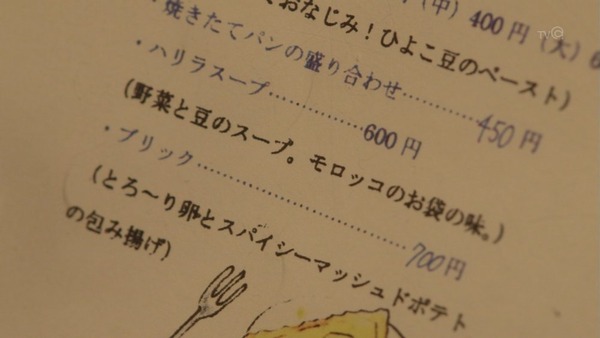 (中) 400円 (大) 6
おなじみ!ひよこ豆のペースト)
・焼きたてパンの盛り合わせ………450円
・ハリラスープ……………600円
(野菜と豆のスープ。モロッコのお袋の味。)
・ブリック……………………………700円
(とろ～り卵とスパイシーマッシュドポテト
の包み揚げ)
TVC